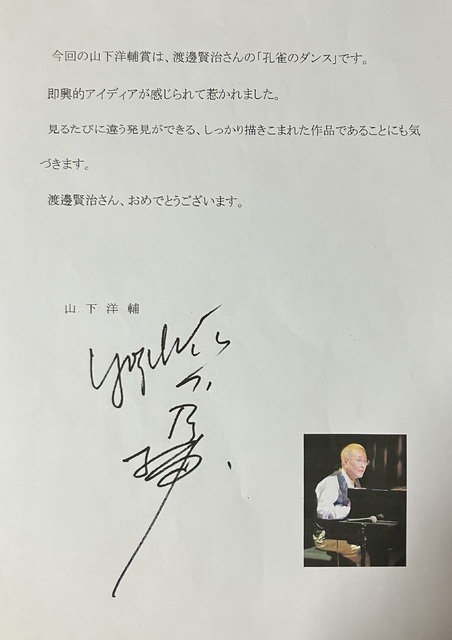 今回の山下洋輔賞は、渡邊賢治さんの「孔雀のダンス」です。
即興的アイディアが感じられて惹かれました。
見るたびに違う発見ができる、しっかり描きこまれた作品であることにも気
づきます。
渡邊賢治さん、おめでとうございます。
山 下 洋 輔